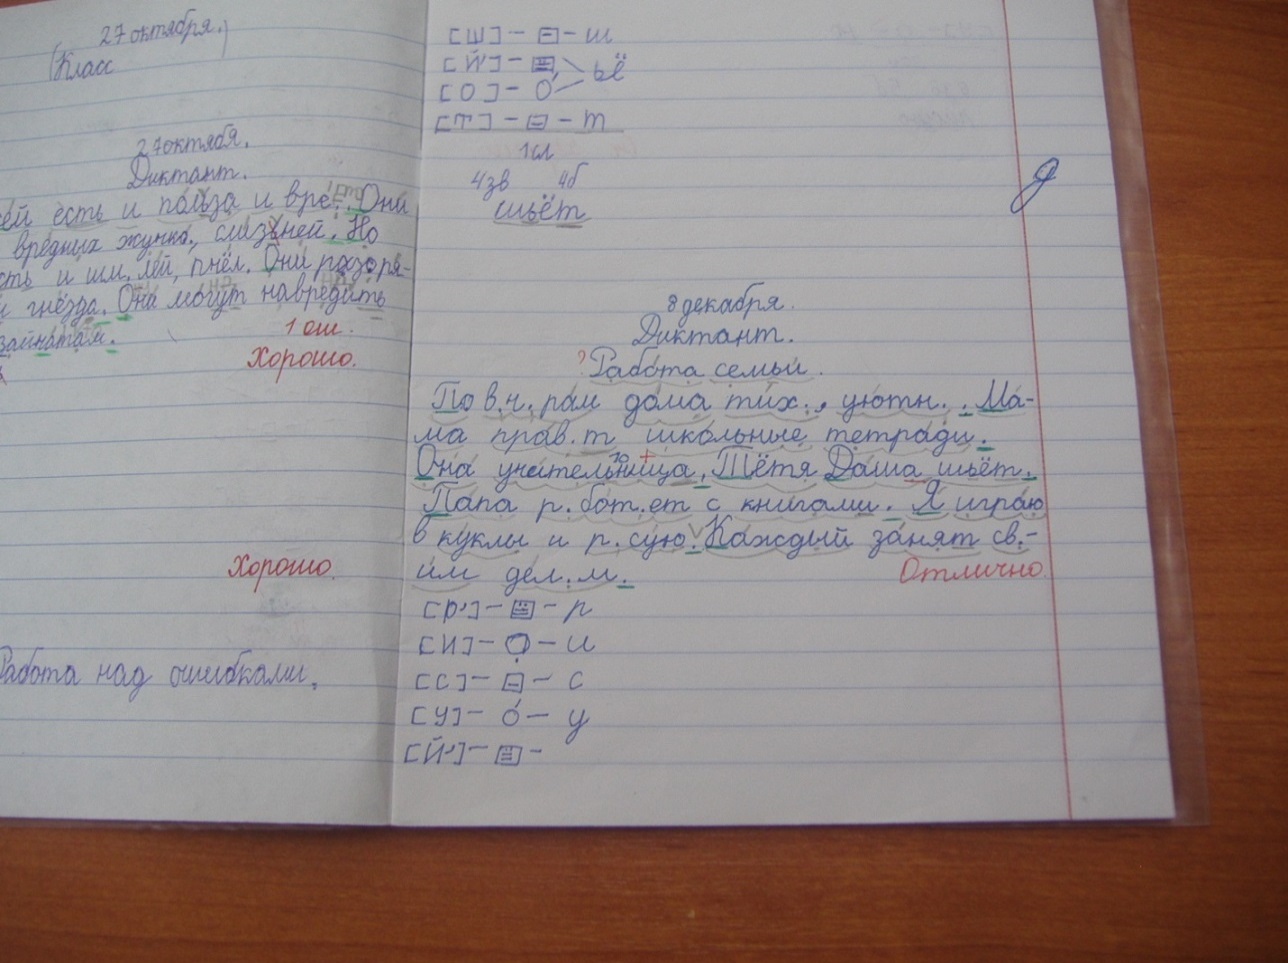 27 октября.
Класс
27октябя.
Диктант.
ей есть и польза и вре. Они
вредных жучков, слизней. Но
сть и шм. лей, пчёл. Они разоря-
и гнёзда. Она могут навредить
1 ош.
Хорошо.
Хорошо.
Работа над ошибками.
[Ш] – – ш
[Й'] – ьё
[О] – О
[Т] – – т
1сл
4зв 4б
шьёт
8декабря.
Диктант.
? Работа семьи.
По в.ч.рам дома тих., уютн.. Ма-
ма прав.т школьные тетради.
Она учительница. Тётя Даша шьёт.
Папа р.бот.ет с книгами. Я играю
в куклы и р.сую. Каждый занят св.-
им дел.м.
Отлично
[Р'] – – р
[И] – – и
[С] – – с
[У] – – у
[Й'] – –